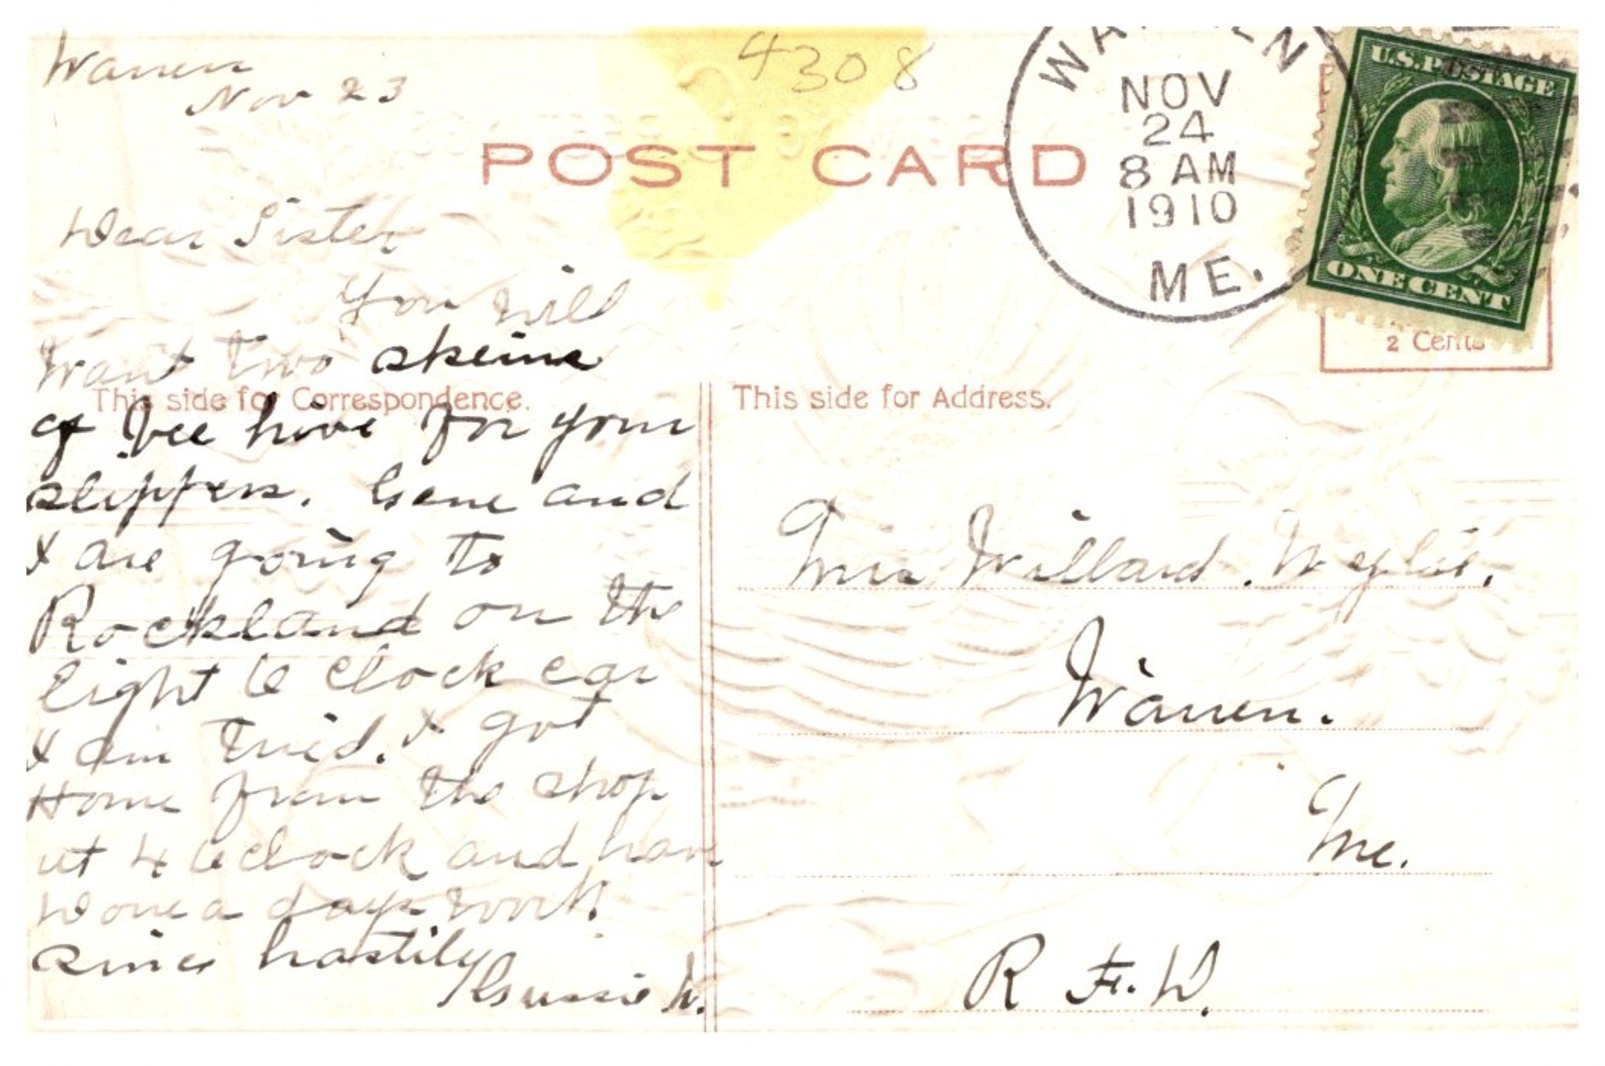 Warren
Nov 23
4308
POST CARD
WARREN
NOV
24
8 AM
1910
ME.
U.S. POSTAGE
ONE CENT
2 Cents
Dear Sister
You will
want two skeins
This side for Correspondence.
of bee hive for your
slippers. Gene and
I are going to
Rockland on the
eight O clock car
I am tired. I got
Home from the shop
at 4 O clock and have
done a days work
since hastily
Gussie W.
This side for Address.
Mrs Willard Wylie.
Warren.
Me.
R F. D.